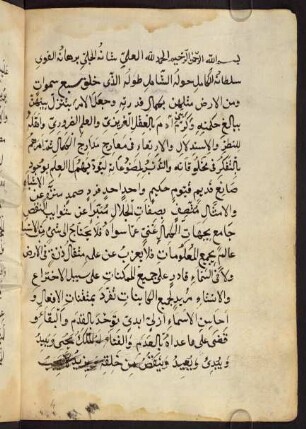 بسم الله الرحمن الرحيم الحمد لله العلي شانه الجلي برهانه القوي
سلطانه الكامل حوله الشامل طوله الذي خلق سبع سموات
ومن الارض مثلهن بكمال قدرته وجعل الامر يتنزل بينهن
ببالغ حكمته وكرم بني آدم بالعقل الغريزي والعلم الضروري واهله
للنظر والاستدلال والارتقاء في معارج مدارج الكمال
بالتفكر في مخلوقاته والتدبر لمصنوعاته العلم بوجود
صانع قديم قيوم حكيم واحد احد فرد صمد منزه عن الاشباه
والامثال متصف بصفات الجلال مبرأ عن شوائب النقص
جامع لجهات الكمال غني عما سواه فلا يحتاج الى شيء
عالم بجميع المعلومات فلا يعزب عن علمه مثقال ذرة في الارض
ولا في السماء قادر على جميع الممكنات على سبيل الاختراع
والانشاء مريد لجميع الكاينات تفرد بمتقنات الافعال و
احاسن الاسماء ازلي ابدي توحد بالقدم والبقاء و
قضى على ما عداه بالعدم والفناء له الملك يحيي ويبيد
ويبدئ ويعيد وينقص من خلقه ويزيد